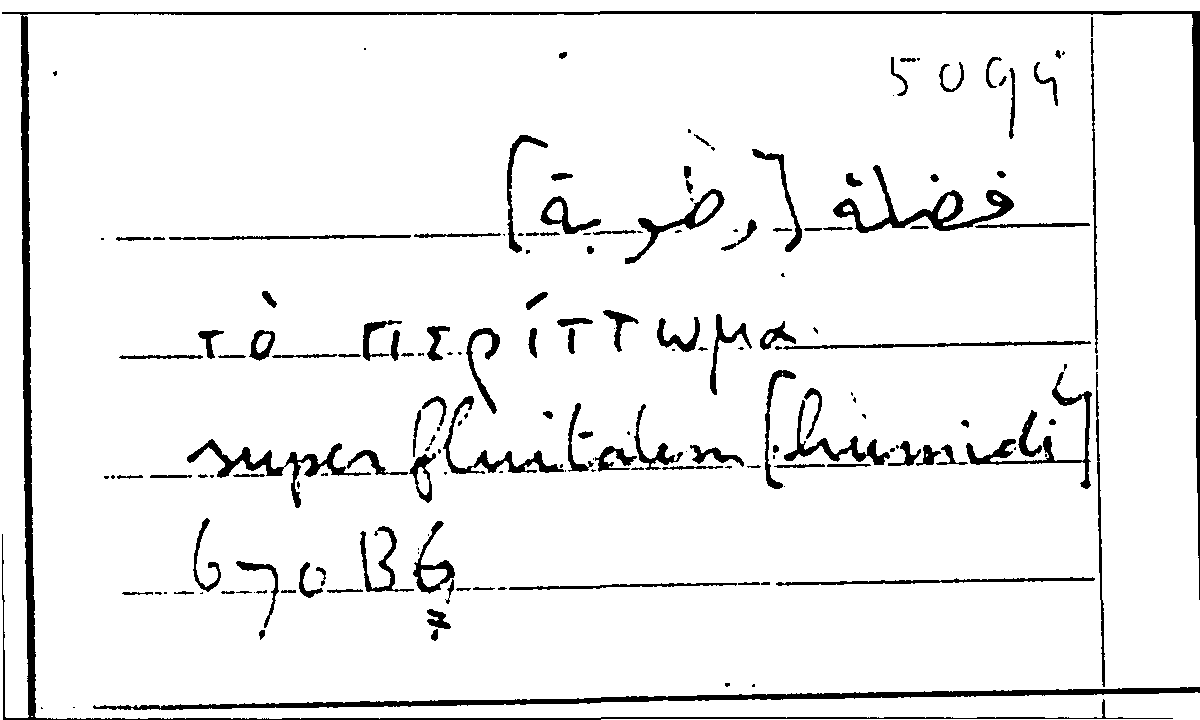 5094
فضلة [رطوبة]
τὸ περίττωμα
superfluitatem [humidi]
670B6